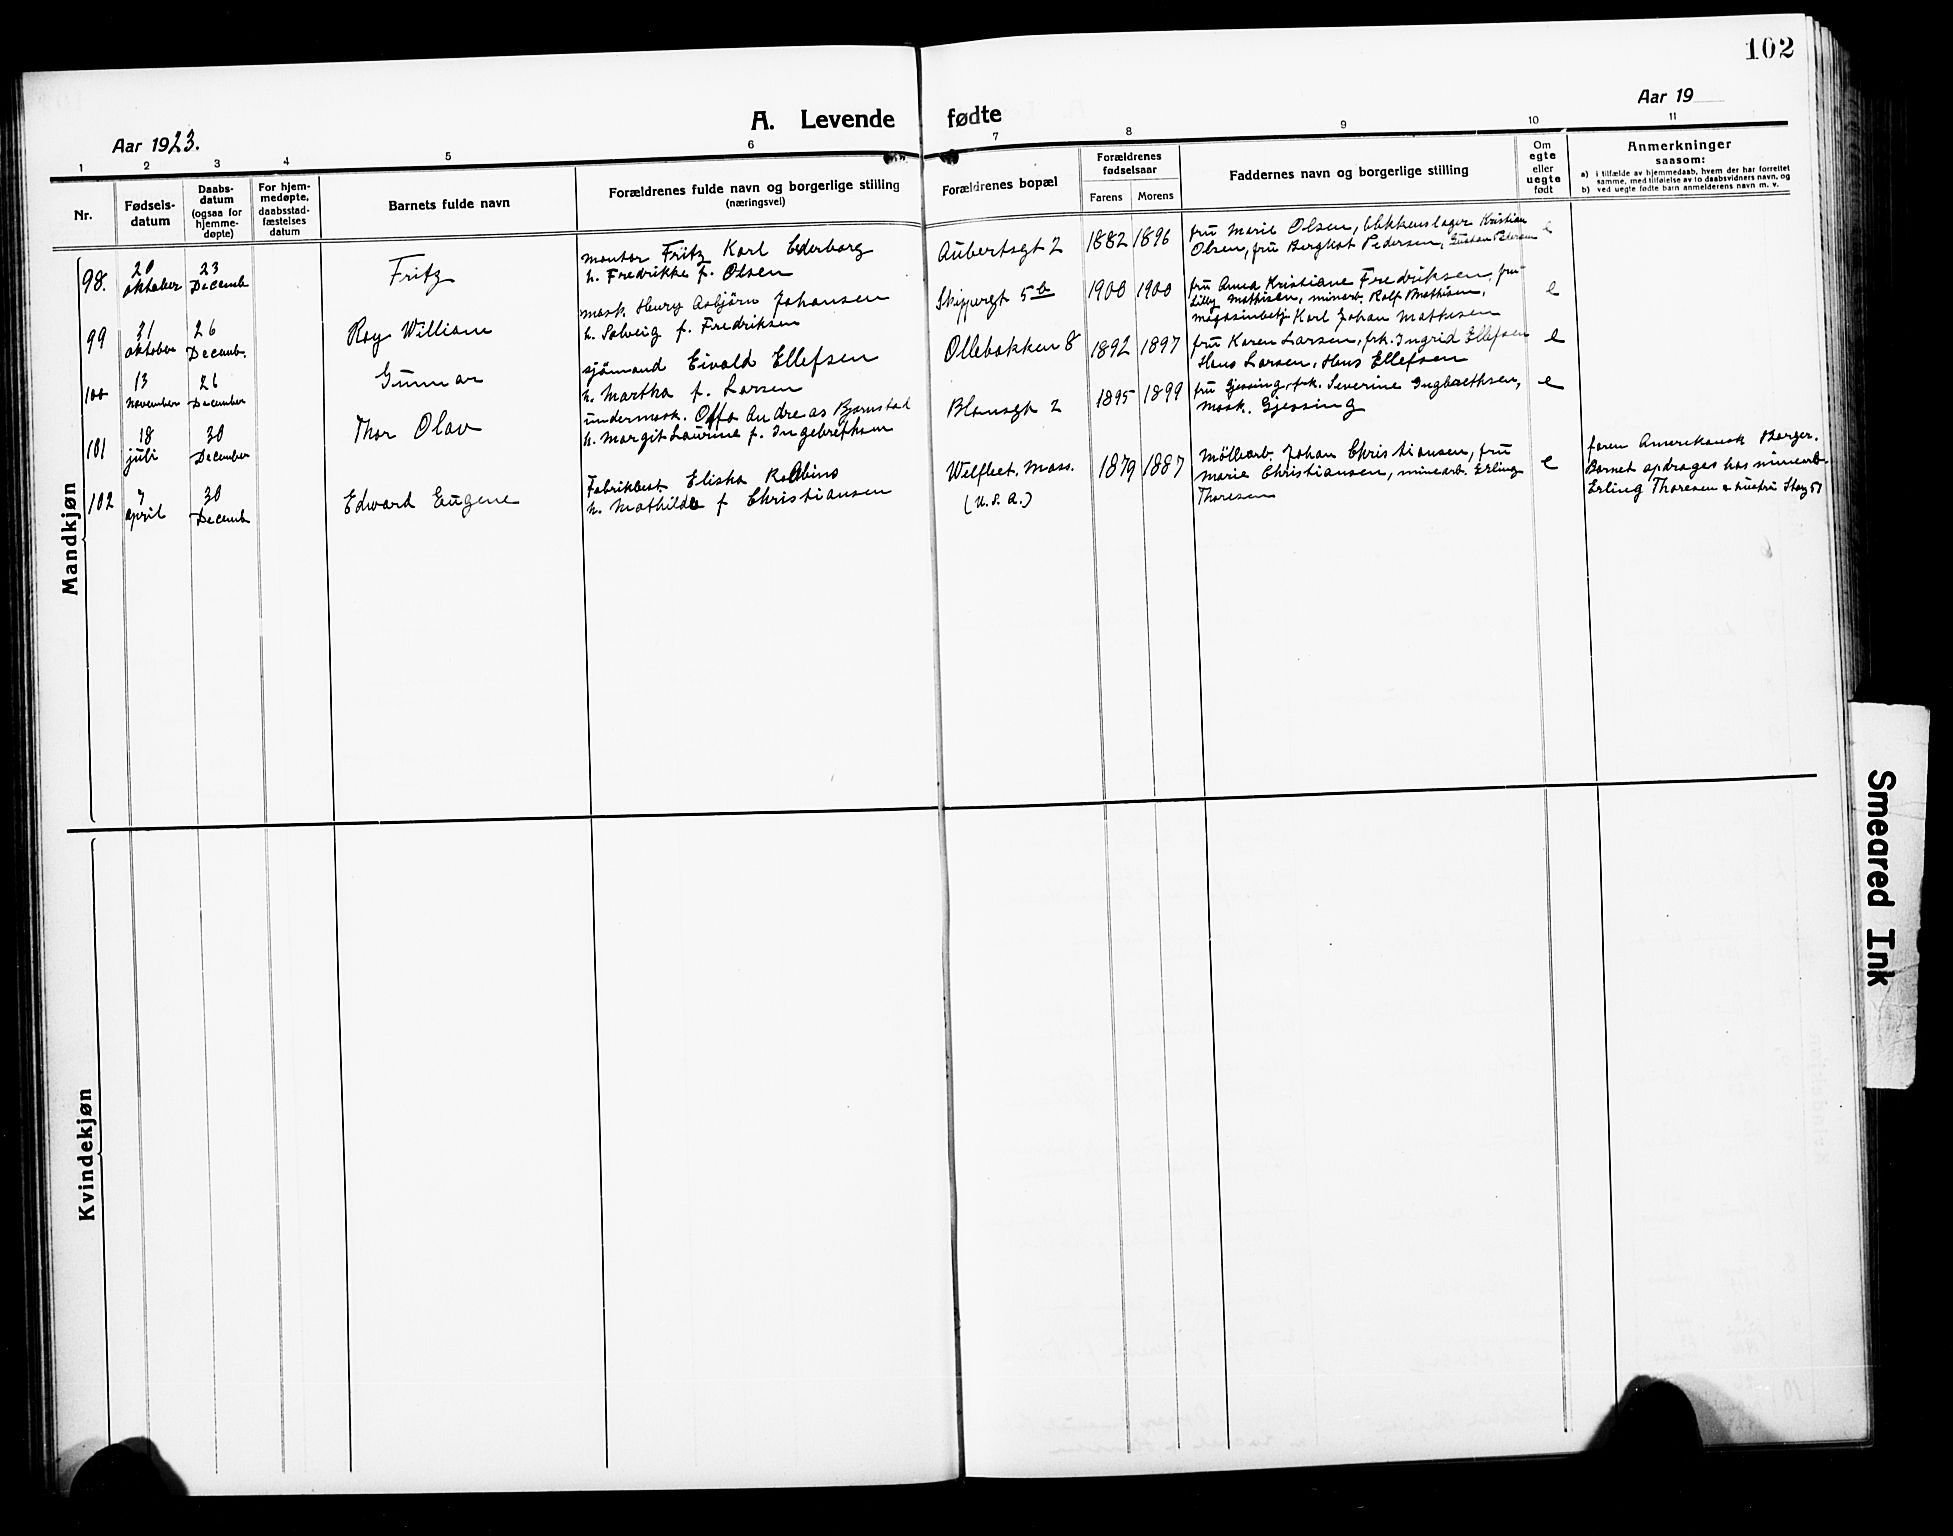 102
Aar 1923.
A. Levende fødte
Aar 19
1 2 3 4 5 6 7 8 9 10 11
Nr.
Fødsels-
datum
Daabs-
datum
(ogsaa for
hjemme-
døpte)
For hjem-
medøpte,
daabsstad-
fæstelses
datum
Barnets fulde navn
Forældrenes fulde navn og borgerlige stilling
(næringsvei)
Forældrenes bopæl
Forældrenes
fødselsaar
Farens Morens
Faddernes navn og borgerlige stilling
Om
egte
eller
uegte
født
Anmerkninger
saasom:
a) i tilfælde av hjemmedaab, hvem der har forrettet
samme, med tilføielse av to daabsvidners navn, og
b) ved uegte fødte barn anmelderens navn m. v.
Mandkjøn
98.
20
oktober
23
Decemb
Fritz
montør Fritz Karl Ederborg
h. Fredrikke f. Olsen
Aubertsgt 2
1882 1896
fru Marie Olsen, blikkenslager Kristian
Olsen, fru Bergliot Pedersen, Gustav Petersen
e
99
31
oktober
26
Decemb.
Roy William
mask. Henry Asbjörn Johansen
h. Solveig f. Fredriksen
Skippergt 5b
1900 1900
fru Anna Kristiane Fredriksen, fru
Lilly Mathisen, minearb. Rolf Mathisen,
magasinbetj Karl Johan Mathisen
e
100
13
November
26
December
Gunnar
sjömand Eivald Ellefsen
h. Martha f. Larsen
Ollebakken 8
1892 1897
fru Karen Larsen, frk. Ingrid Ellefsen
Hans Larsen, Hans Ellefsen
e
101
18
juli
30
December
Thor Olav
undermask. Offo Andreas Bjørnstad
h. Margit Laurine f. Ingebrethsen
Blomsgt 2
1895 1899
fru Gjessing, frk. Severine Ingbrethsen,
Mask. Gjessing
e
102
7
april
30
Decemb
Edward Eugene
Fabrikbest. Elisha Robbins
h. Mathilde f Christiansen
Welfleet. Mass.
(U.S.A.)
1879 1887
Möllearb. Johan Christiansen, fru
Marie Christiansen, minearb. Erling
Thoresen
e
faren Amerikansk Borger.
Barnet opdrages hos minearb.
Erling Thoresen
Kvindekjøn
Smeared Ink